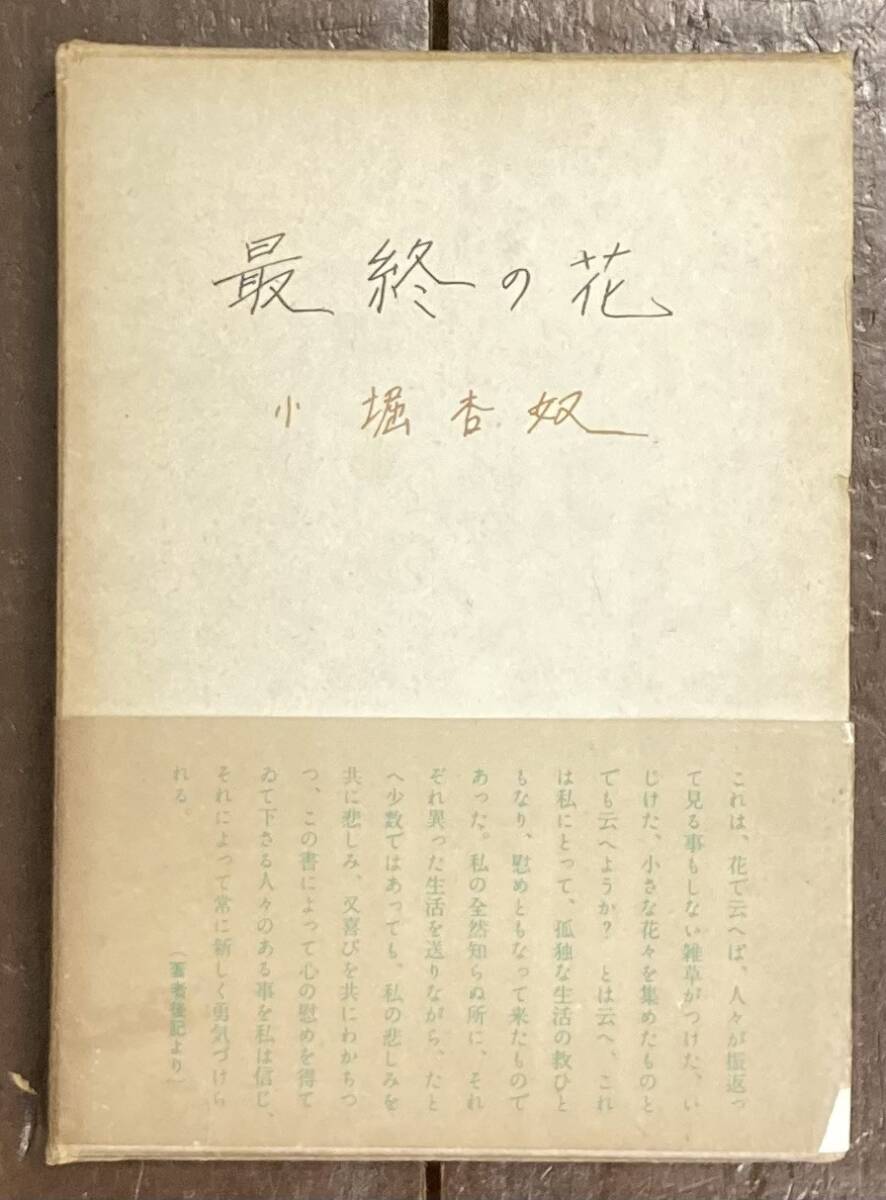 最終の花
小堀杏奴
これは、花で云へば、人々が振返っ
て見る事もしない雑草がつけた、い
じけた、小さな花々を集めたものと
でも云へようか？　とは云へ、これ
は私にとって、孤独な生活の救ひと
もなり、慰めともなって来たもので
あった。私の全然知らぬ所に、それ
ぞれ異った生活を送りながら、たと
へ少数ではあっても、私の悲しみを
共に悲しみ、又喜びを共にわかちつ
つ、この書によって心の慰めを得て
ゐて下さる人々のある事を私は信じ、
それによって常に新しく勇気づけら
れる。
（著者後記より）